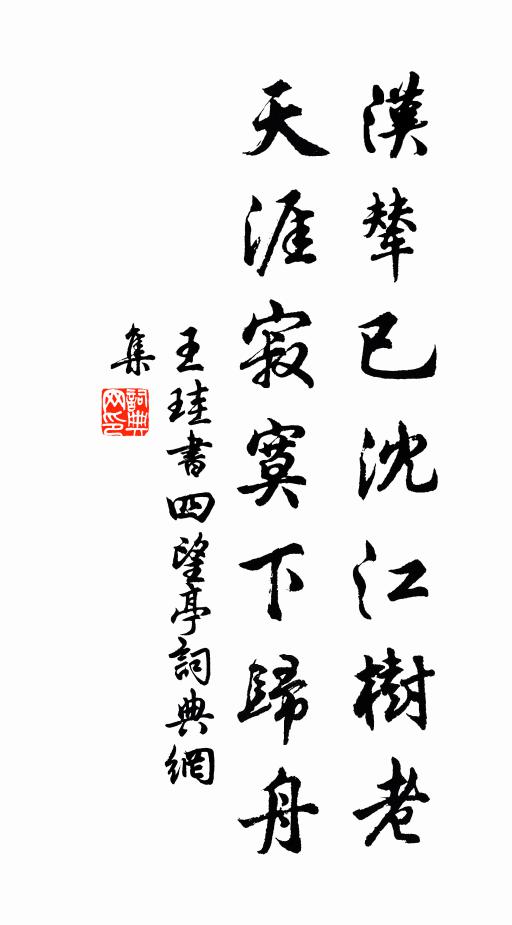 漢輦已沈江樹老
天涯寂寞下歸舟
王珪書四望亭詞典網
集
詞典
网印